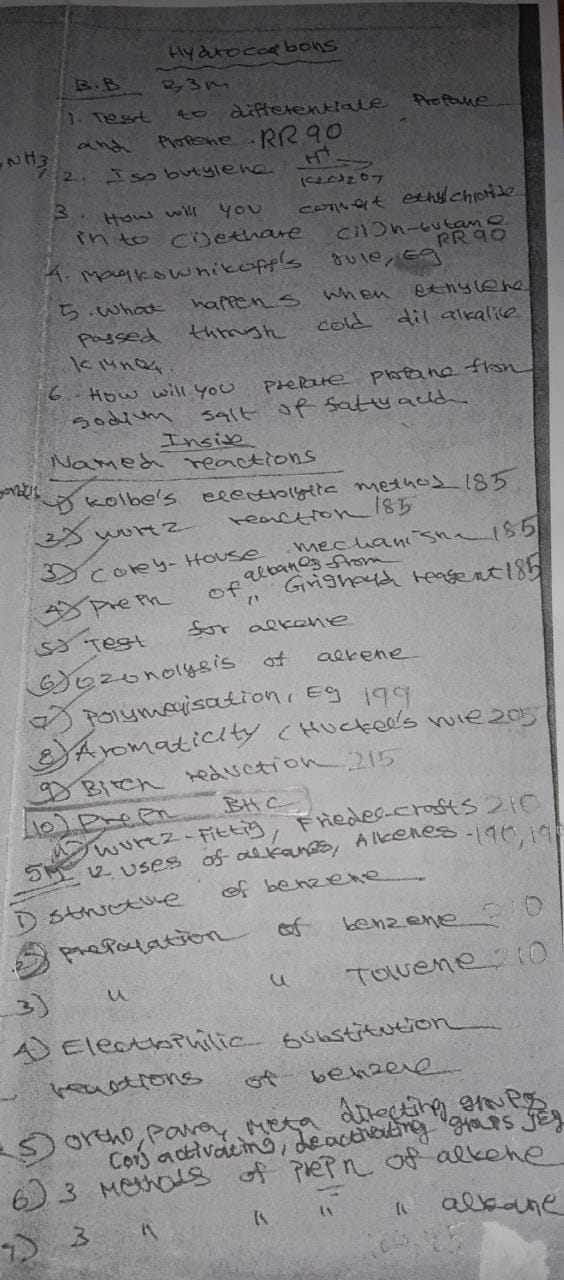 Hydrocarbons
B.B 2,3m
1. Test to differentiate Propane
and Propene. RR 90
NH3,
2. Isobutylene H+
K2Cr2O7
3. How will you convert ethylchloride
in to (i) ethane (ii) n-butane
RR90
4. Markownikoff's rule, Eg
5. What happens when ethylene
passed through cold dil alkalice
KMnO4.
6. How will you prepare propane from
sodium salt of fatty acid
Inside
Named reactions
1) Kolbe's electrolytic method 185
2) Wurtz reaction 185
3) Corey-House mechanism 185
4) Prepn of alkanes from
" Grignard reagent 185
5) Test for alkene
6) Ozonolysis of alkene
7) Polymerisation, Eg 199
8) Aromaticity (Huckel's rule 205
9) Birch reduction 215
10) Prepn BHC
11) Wurtz-Fittig, Friedel-crafts 210
5M 12. Uses of alkanes, Alkenes - 190,
1) Structure of benzene
2) Preparation of benzene 210
3) " " Toluene 210
4) Electrophilic substitution
reactions of benzene
5) Ortho, para, Meta directing groups
(or) activating, deactivating groups Eg
6) 3 Methods of prepn of alkene
7) 3 " " " " alkane